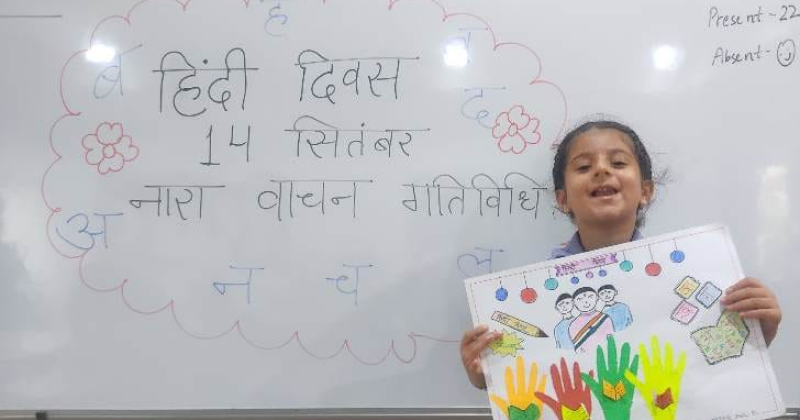 Present - 22
Absent -
ह
ब
हिंदी दिवस
द
14 सितंबर
नारा वाचन गतिविधि
अ
न च ल